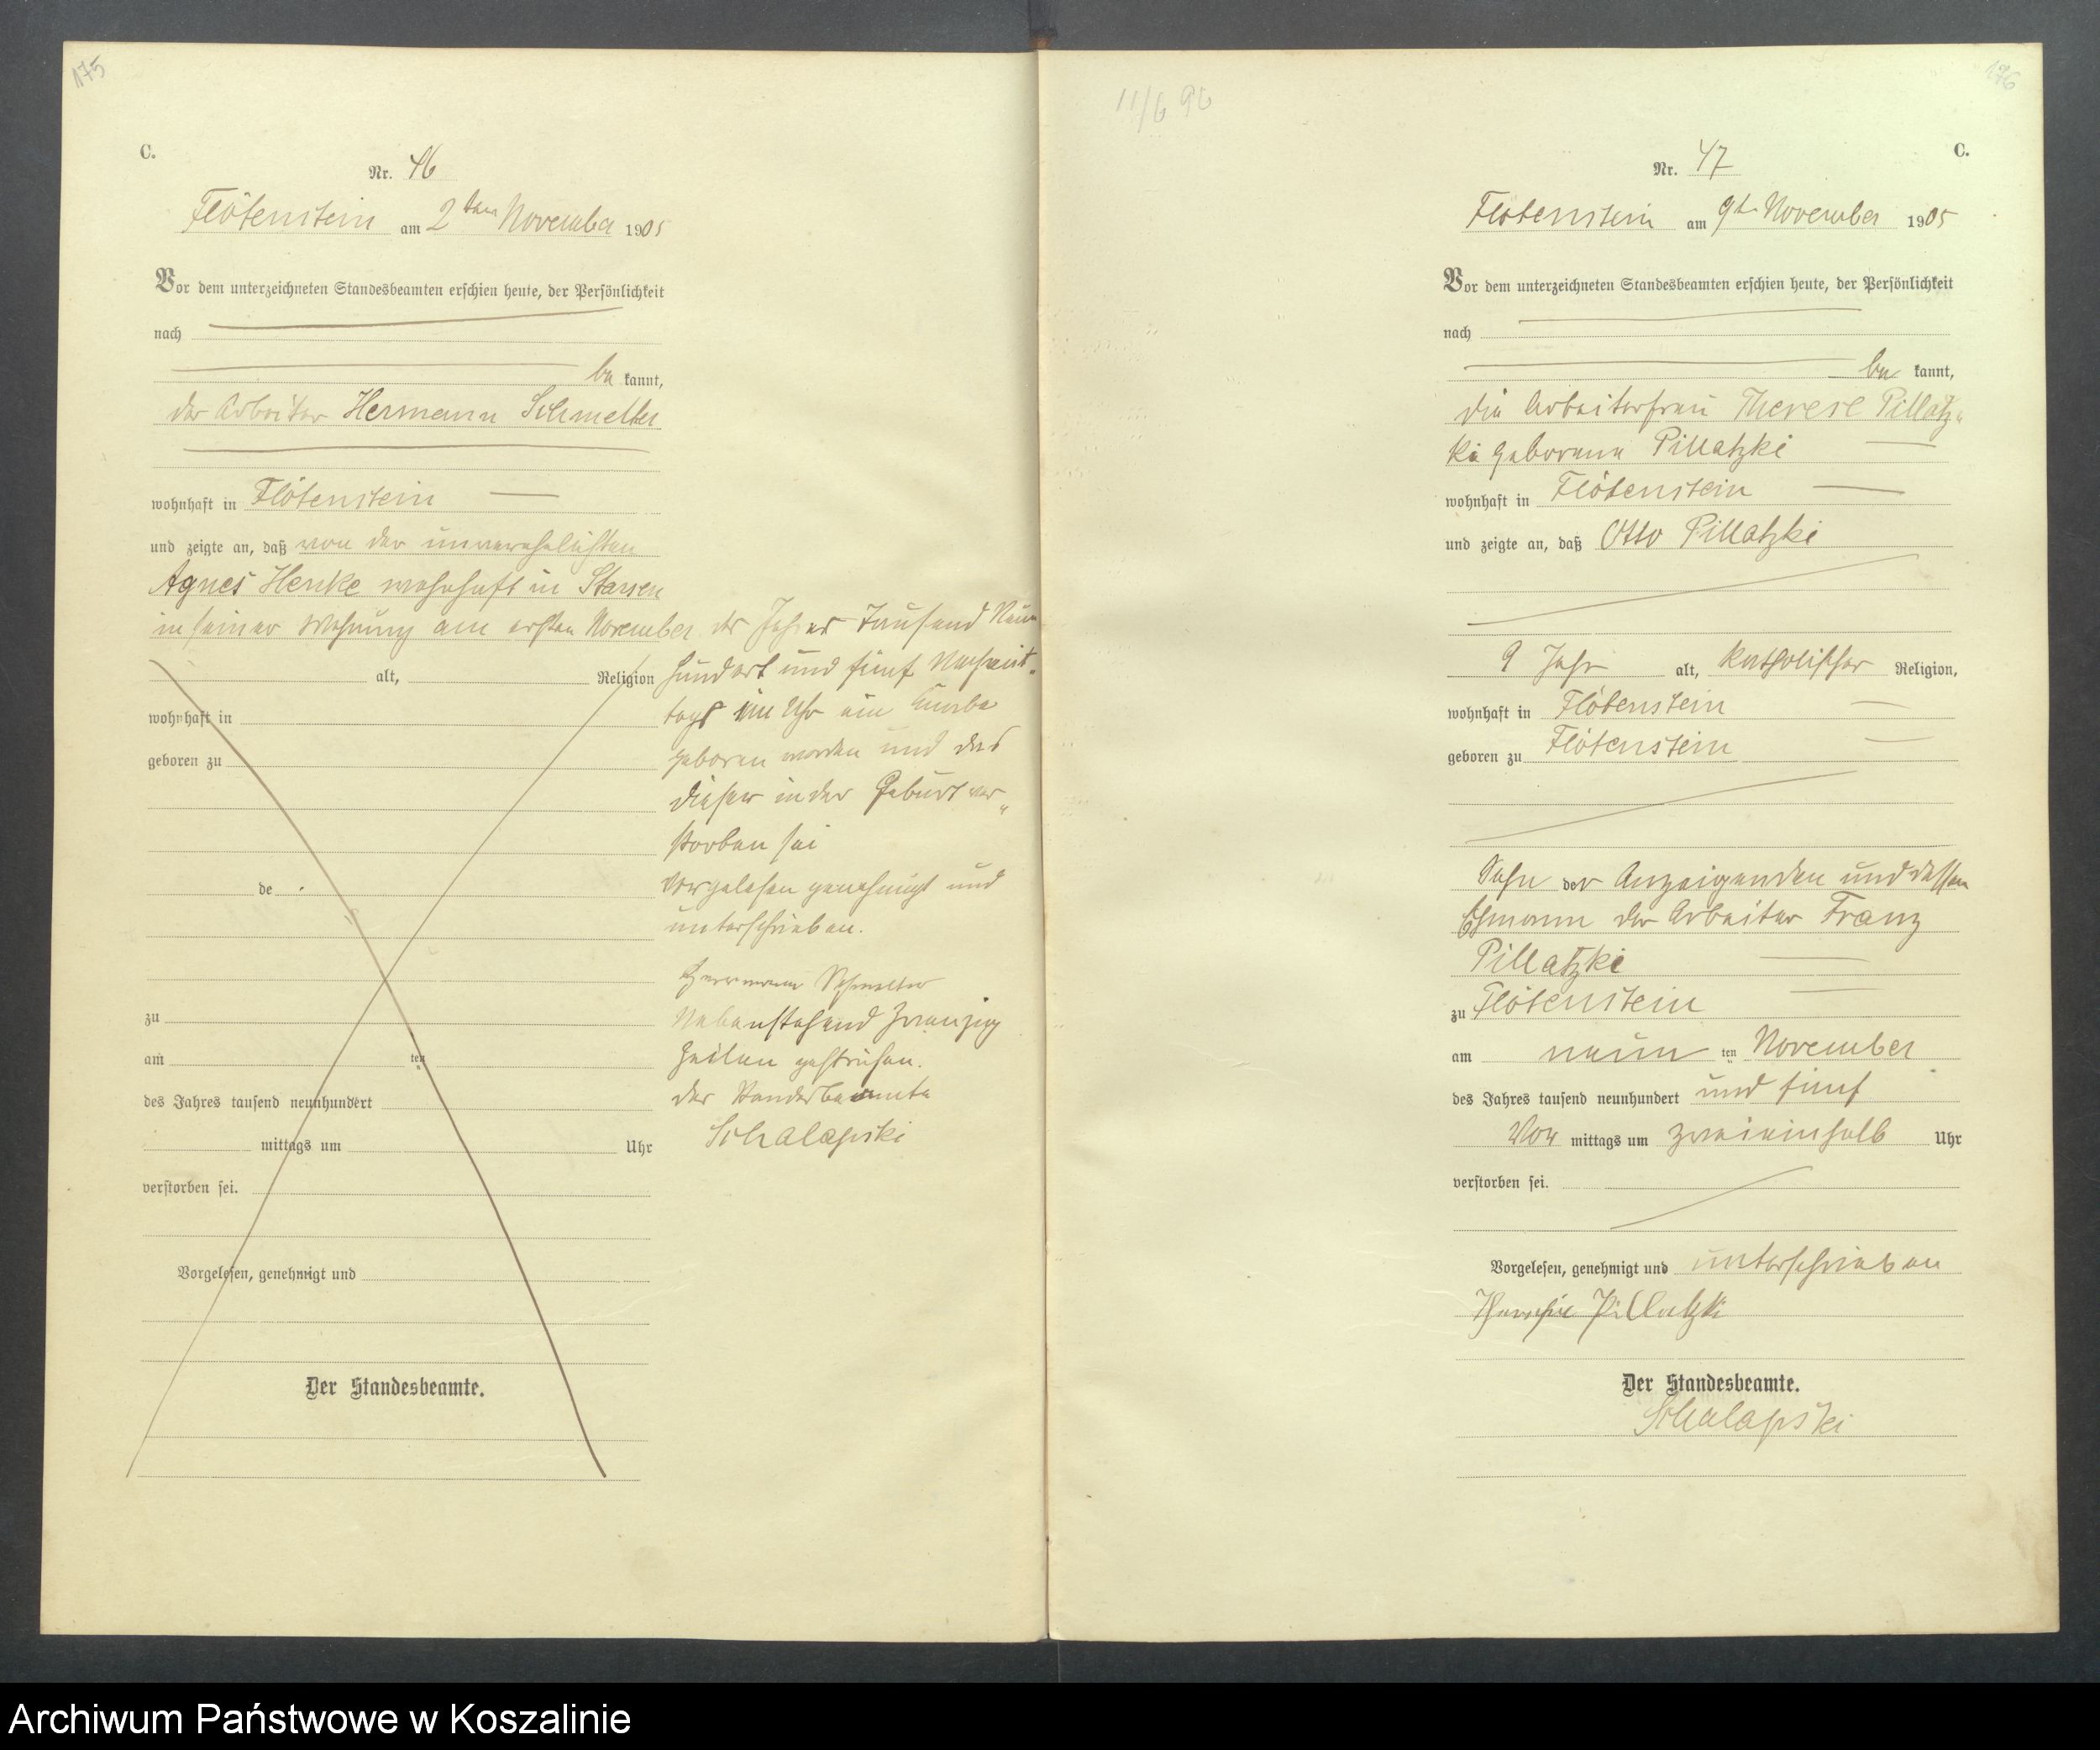 175
C.
Nr. 46
Flötenstein am 2ten November 1905
Vor dem unterzeichneten Standesbeamten erschien heute, der Persönlichkeit
nach
be kannt,
der Arbeiter Hermann Schmelter
wohnhaft in Flötenstein
und zeigte an, daß von der unverehelichten
Agnes Henke wohnhaft in Starsen
in seiner Wohnung am ersten November des Jahres Tausend Neun
hundert und fünf Nachmit-
tags Uhr ein Knabe
geboren worden und das
dieser in der Geburt ver„
storben sei
Vorgelesen genehmigt und
unterschrieben.
Herrmann Schmelter
Nebenstehend Zwanzig
Zeilen gestrichen.
Der Standesbeamte
Schalapski
alt, Religion
wohnhaft in
geboren zu
de
zu
am ten
des Jahres tausend neunhundert
mittags um Uhr
verstorben sei.
Vorgelesen, genehmigt und
Der Standesbeamte.
11/6 96
176
C.
Nr. 47
Flötenstein am 9t November 1905
Vor dem unterzeichneten Standesbeamten erschien heute, der Persönlichkeit
nach
be kannt,
die Arbeiterfrau Therese Pillatz„
ki geborene Pillatzki
wohnhaft in Flötenstein
und zeigte an, daß Otto Pillatzki
9 Jahr alt, katholischer Religion,
wohnhaft in Flötenstein
geboren zu Flötenstein
Sohn der Anzeigenden und dessen
Ehmann der Arbeiter Franz
Pillatzki
zu Flötenstein
am neun ten November
des Jahres tausend neunhundert und fünf
Vor mittags um zweieinhalb Uhr
verstorben sei.
Vorgelesen, genehmigt und unterschrieben
Pillatzki
Der Standesbeamte.
Schalapski
Archiwum Państwowe w Koszalinie